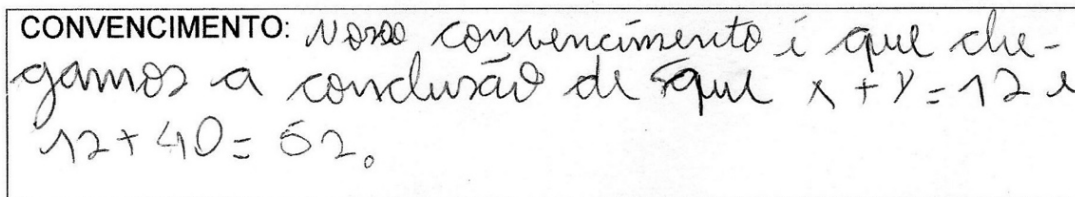 CONVENCIMENTO: Nosso convencimento é que che-
gamos a conclusão de que x + y = 12 e
12 + 40 = 52.